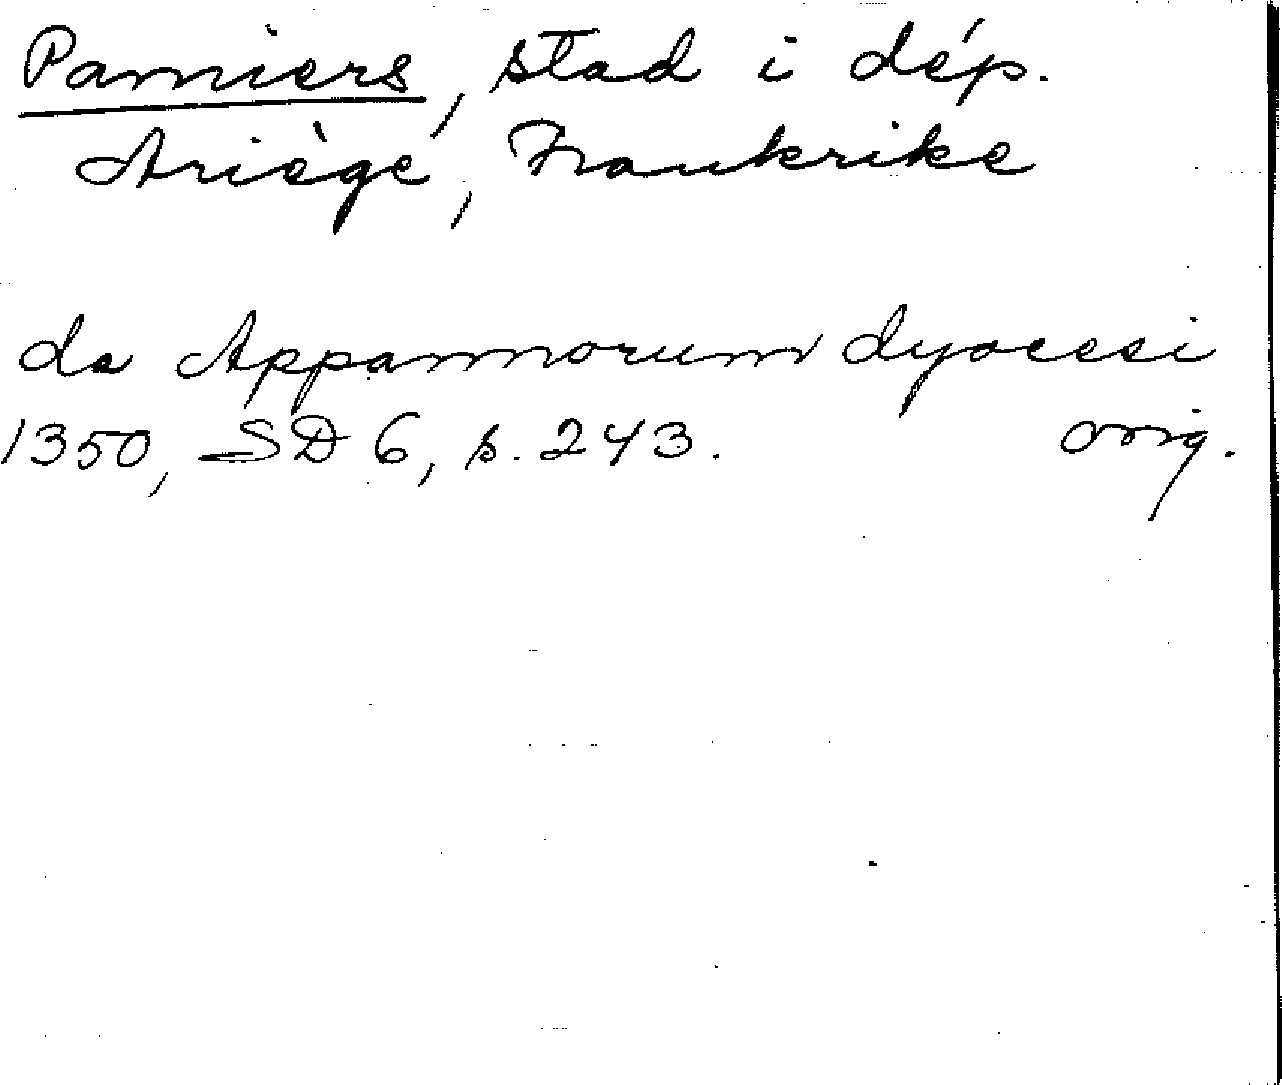 Pamiers, stad i dép.
Ariège, Frankrike
de Appamiorum dyocesi
1350, SD 6, s. 243. orig.